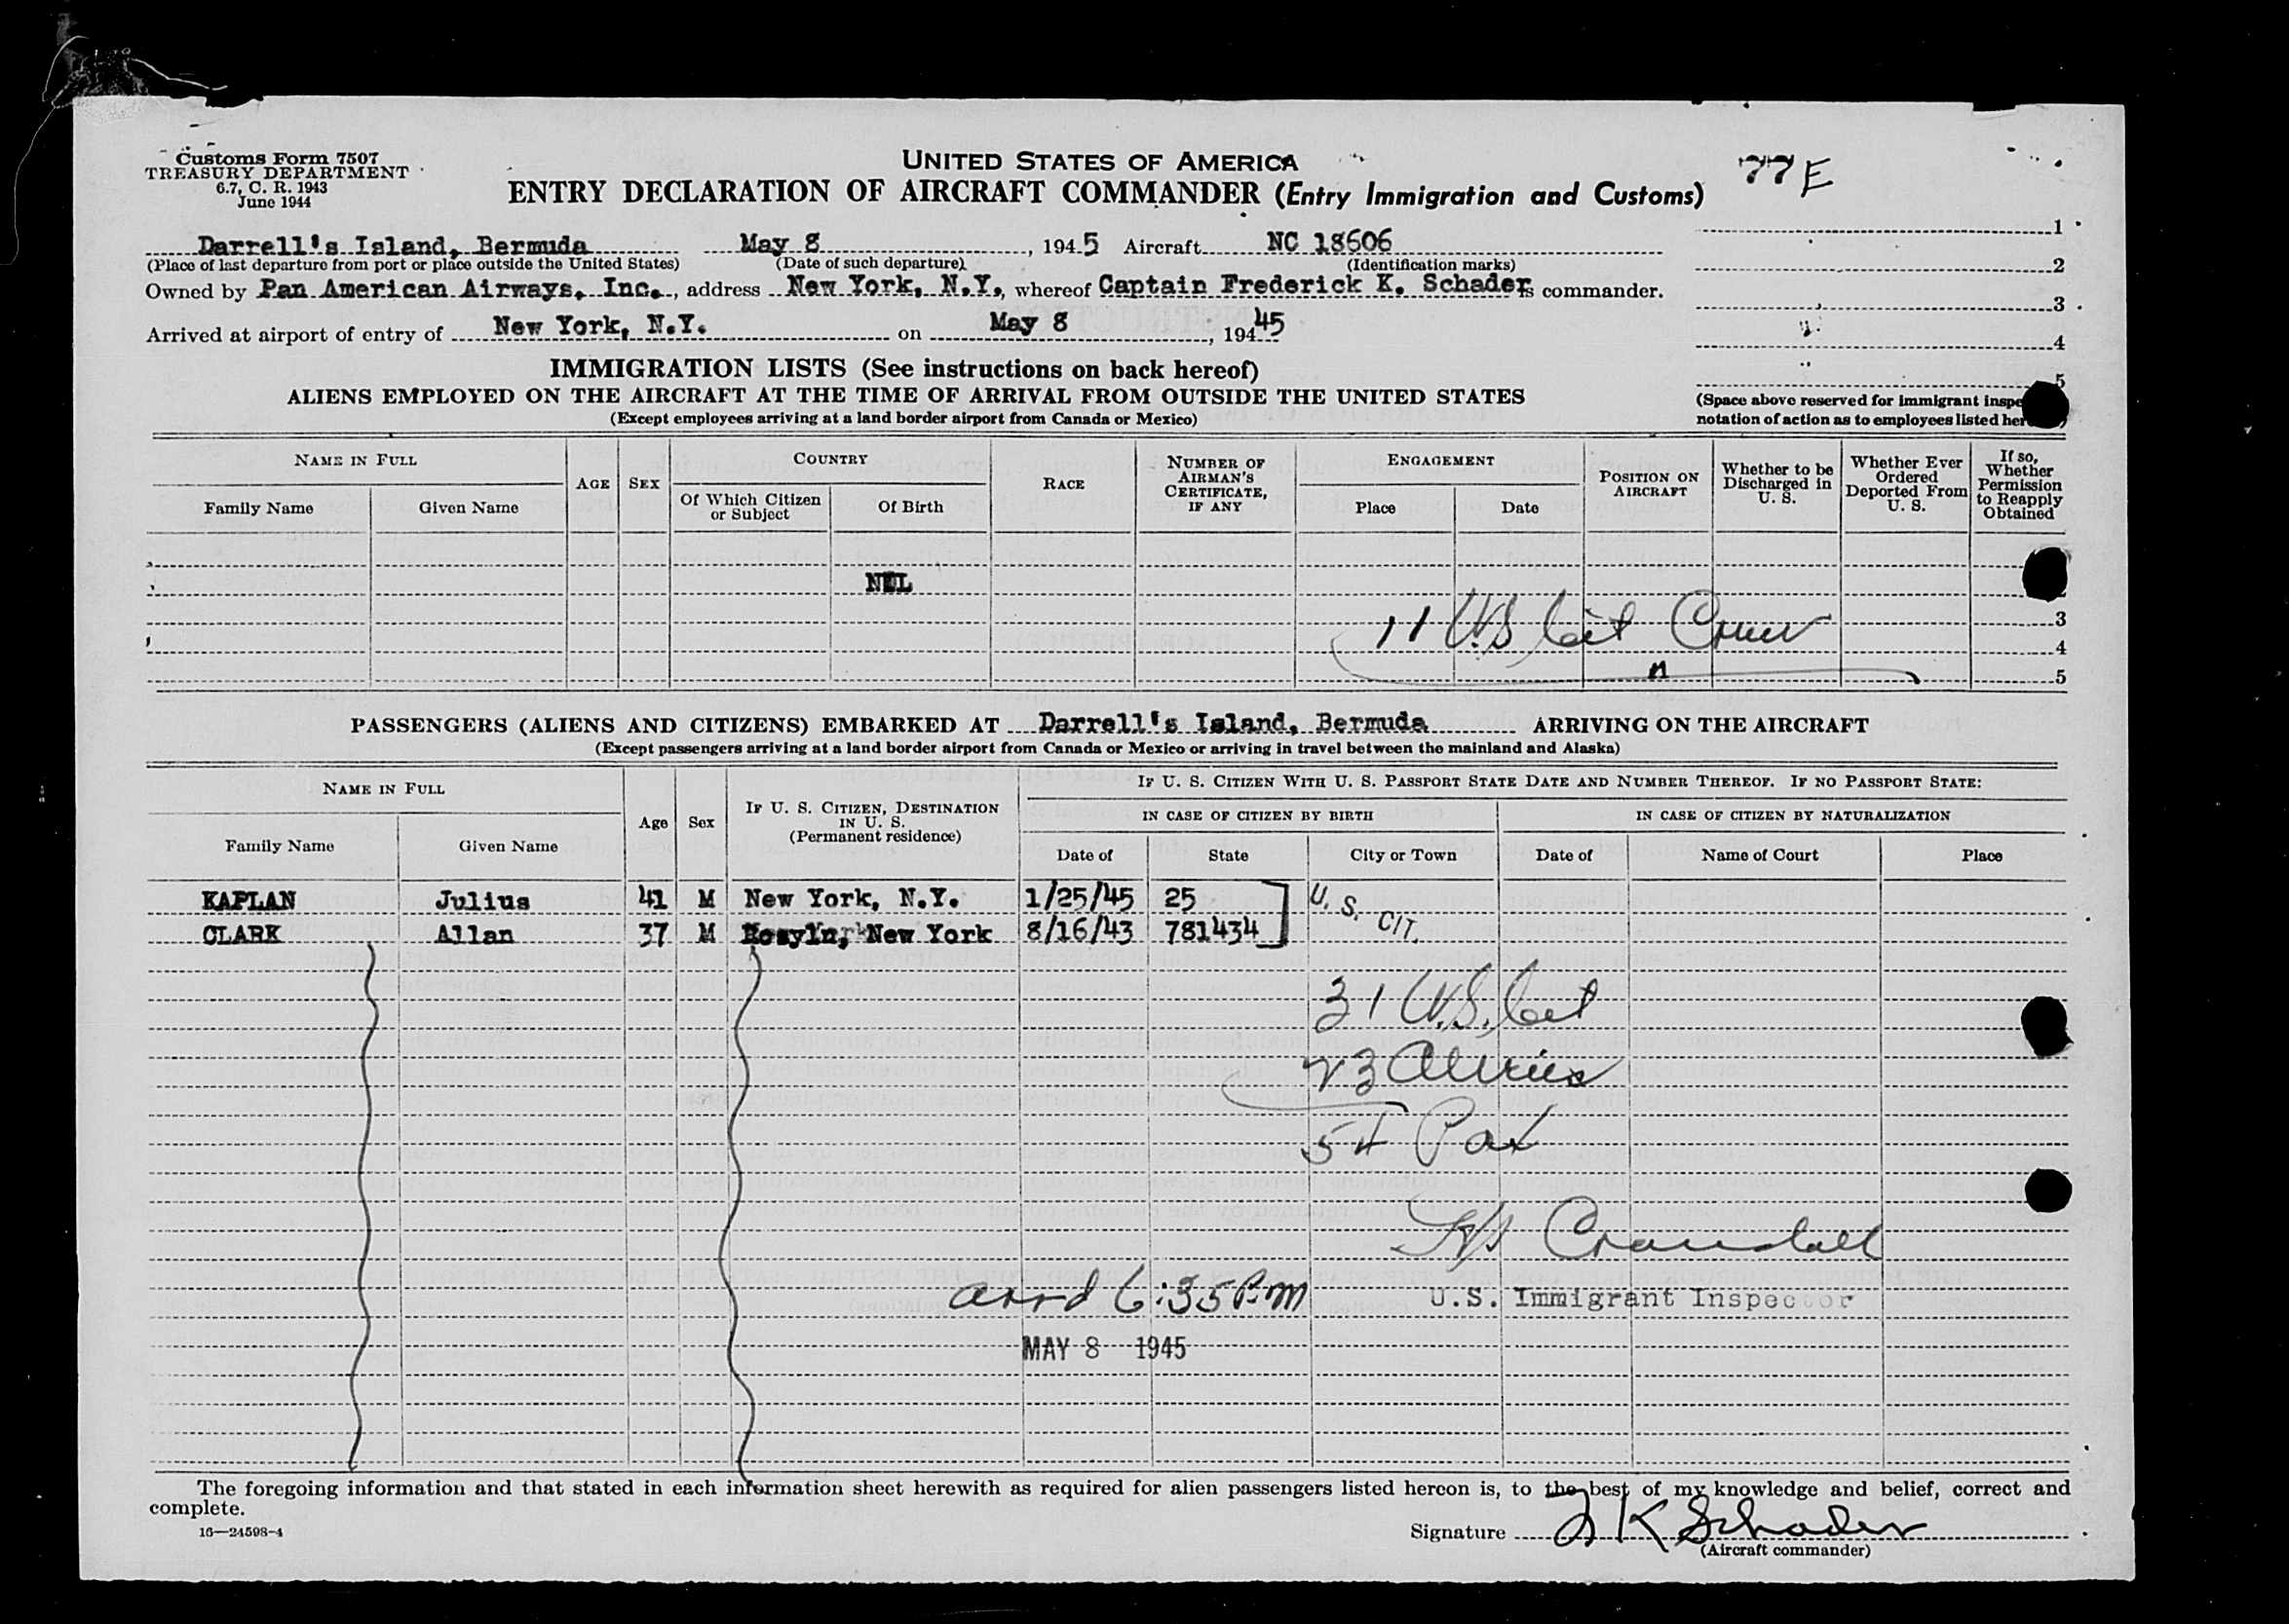 Customs Form 7507
TREASURY DEPARTMENT
6.7, C. R. 1943
June 1944
UNITED STATES OF AMERICA
ENTRY DECLARATION OF AIRCRAFT COMMANDER (Entry Immigration and Customs)
77E
Darrell's Island, Bermuda May 8, 1945 Aircraft NC 18606
(Place of last departure from port or place outside the United States) (Date of such departure) (Identification marks)
Owned by Pan American Airways, Inc., address New York, N.Y., whereof Captain Frederick K. Schader is commander.
Arrived at airport of entry of New York, N.Y. on May 8, 19445
1
2
3
4
5
(Space above reserved for immigrant inspe
notation of action as to employees listed her
IMMIGRATION LISTS (See instructions on back hereof)
ALIENS EMPLOYED ON THE AIRCRAFT AT THE TIME OF ARRIVAL FROM OUTSIDE THE UNITED STATES
(Except employees arriving at a land border airport from Canada or Mexico)
NAME IN FULL
Family Name Given Name
AGE SEX
COUNTRY
Of Which Citizen or Subject Of Birth
RACE
NUMBER OF AIRMAN'S CERTIFICATE, IF ANY
ENGAGEMENT
Place Date
POSITION ON AIRCRAFT
Whether to be Discharged in U. S.
Whether Ever Ordered Deported From U. S.
If so, Whether Permission to Reapply Obtained
NIL
11 U.S Cit Crew
3
4
5
PASSENGERS (ALIENS AND CITIZENS) EMBARKED AT Darrell's Island, Bermuda ARRIVING ON THE AIRCRAFT
(Except passengers arriving at a land border airport from Canada or Mexico or arriving in travel between the mainland and Alaska)
NAME IN FULL
Family Name Given Name
Age Sex
IF U. S. CITIZEN, DESTINATION IN U. S.
(Permanent residence)
IF U. S. CITIZEN WITH U. S. PASSPORT STATE DATE AND NUMBER THEREOF. IF NO PASSPORT STATE:
IN CASE OF CITIZEN BY BIRTH IN CASE OF CITIZEN BY NATURALIZATION
Date of State City or Town Date of Name of Court Place
KAPLAN Julius 41 M New York, N.Y. 1/25/45 25 U.S.
CLARK Allan 37 M New York 8/16/43 781434 CIT.
31 U.S. Cit
23 Aliens
54 Pax
Crandall
arrd 6:35 P.m
U.S. Immigrant Inspector
MAY 8 1945
The foregoing information and that stated in each information sheet herewith as required for alien passengers listed hereon is, to the best of my knowledge and belief, correct and
complete.
16—24598-4
Signature F K Schader
(Aircraft commander)